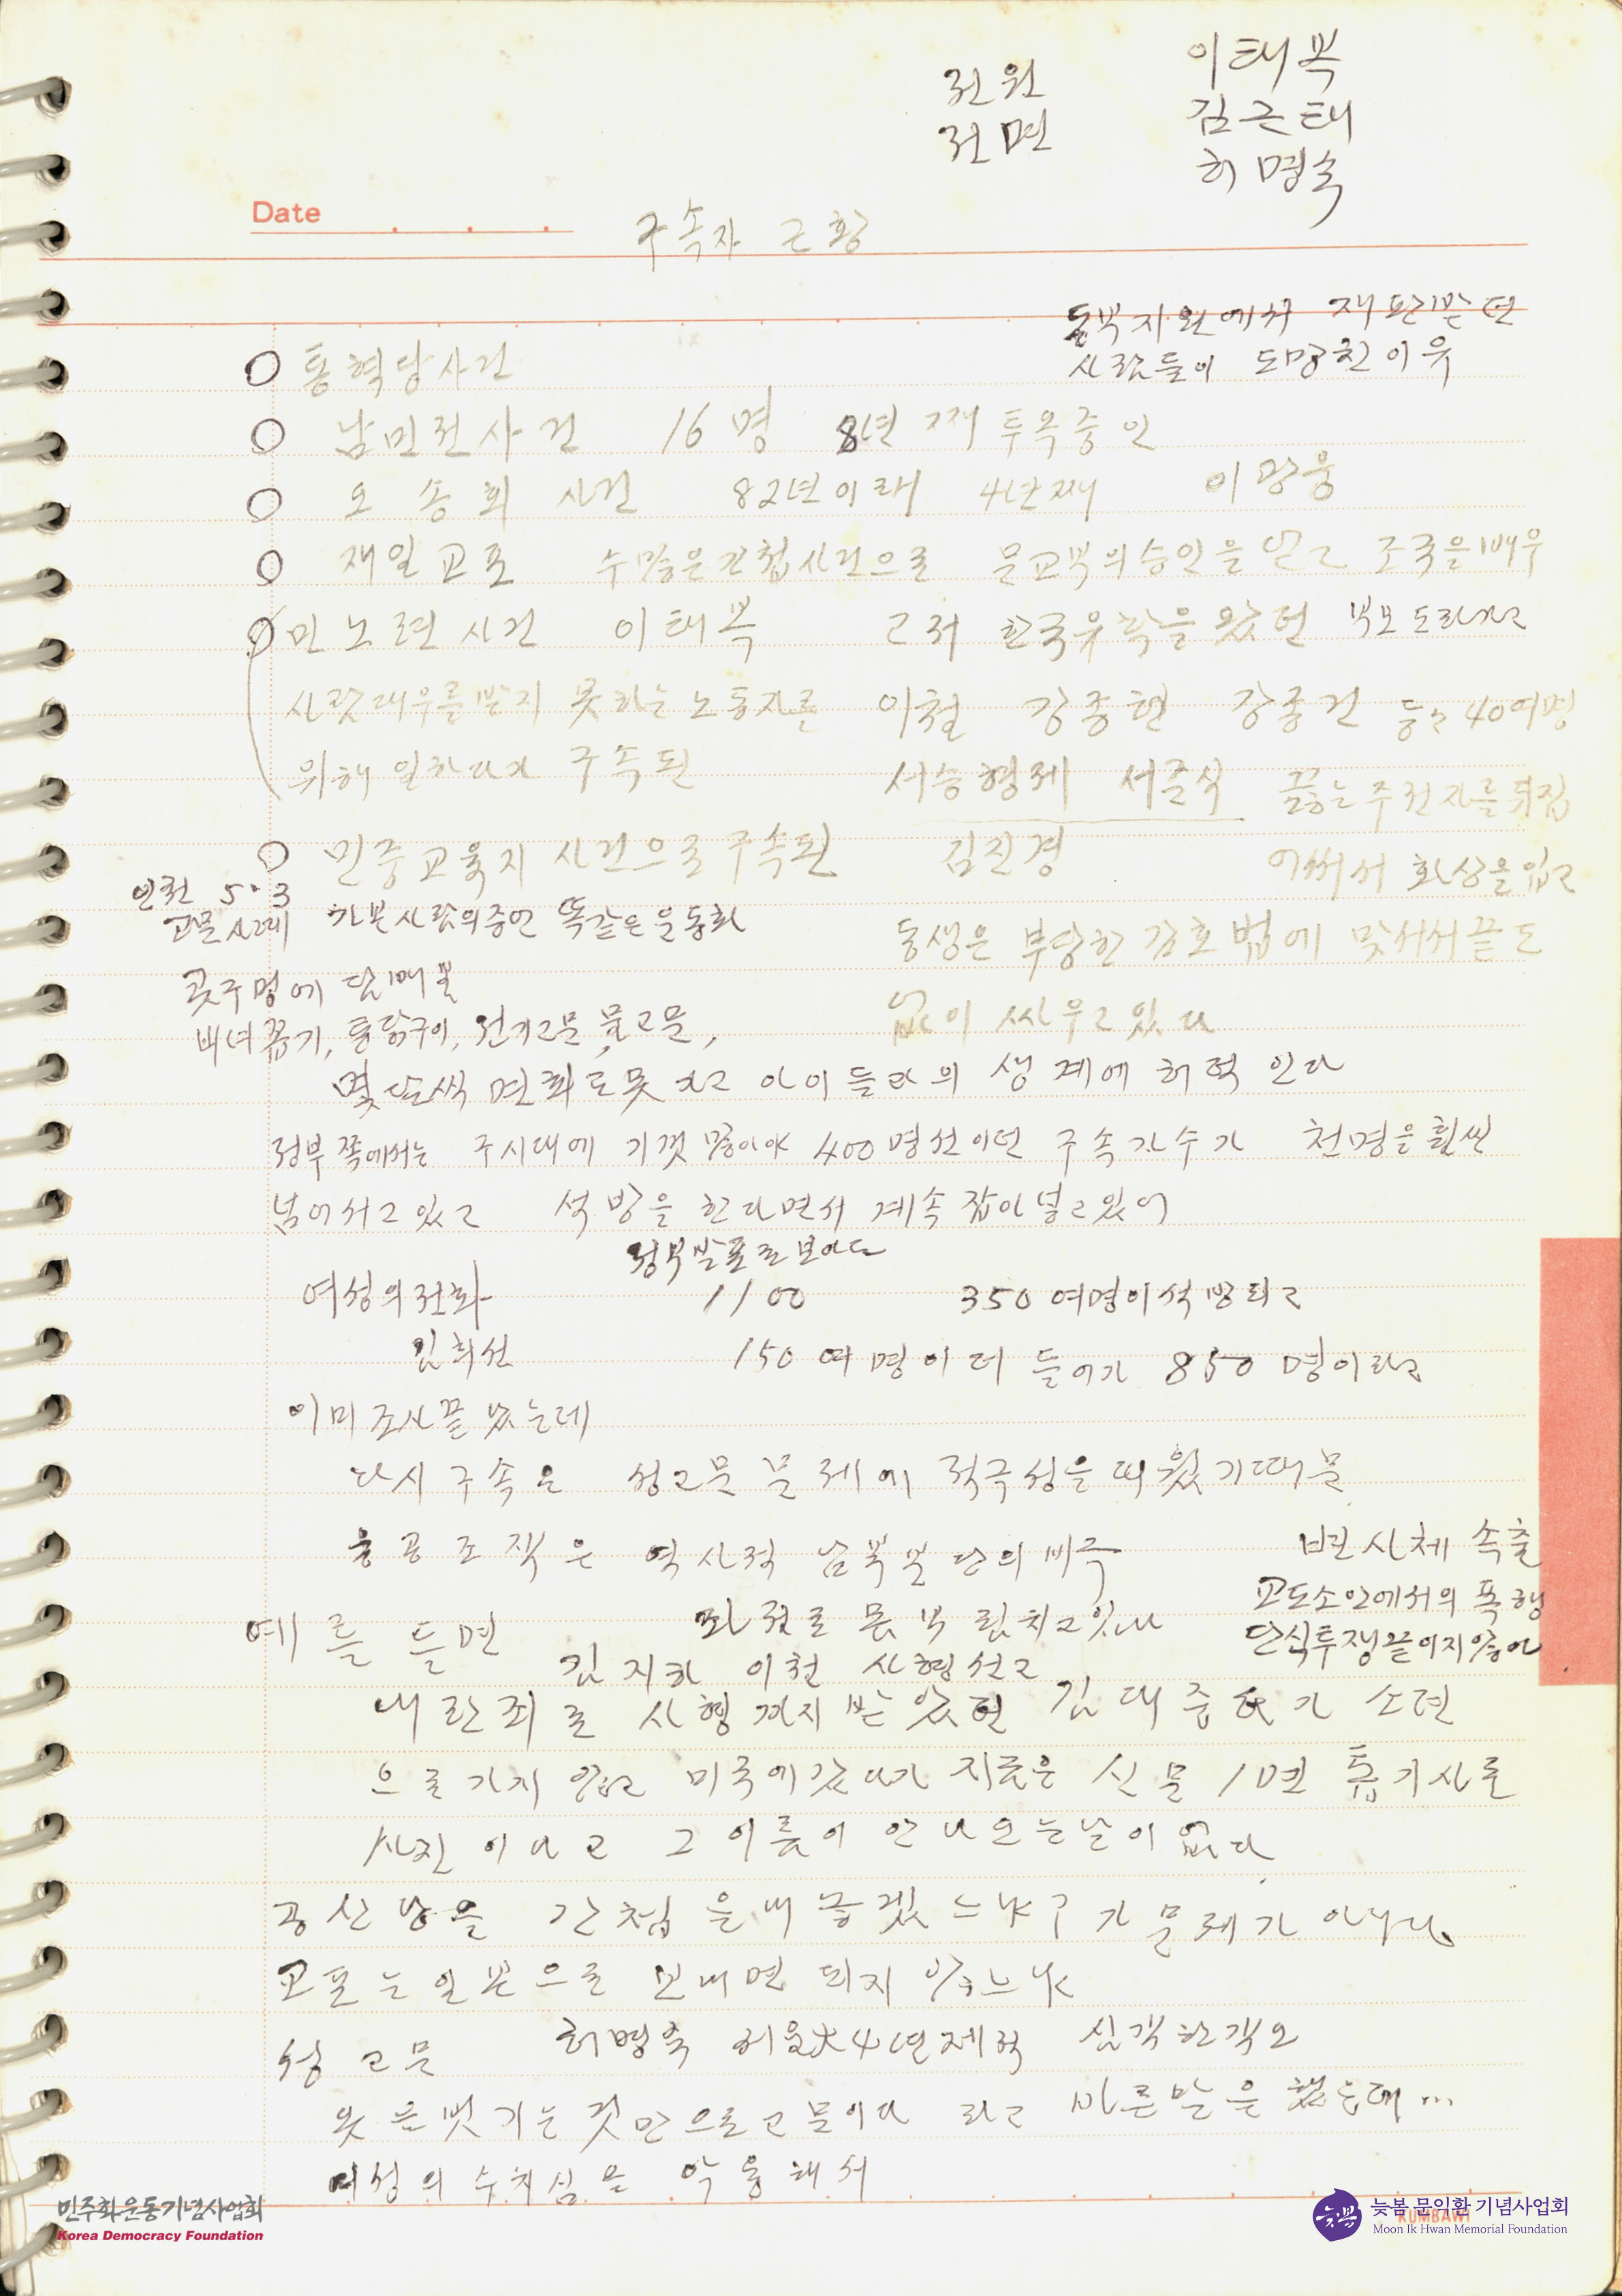 전원 이태복
전면 김근태
허명숙
Date
구속자 근황
동부지원에서 재판받던
사람들이 도망친 이유
○ 통혁당사건
○ 남민전사건 16명 8년째 투옥중인
○ 오송회 사건 82년이래 4년째 이광웅
○ 재일교포 수많은간첩사건으로 문교부의승인을 얻고 조국을배우
○ 민노련사건 이태복 고저 한국유학을왔던 부모도라가고
사람대우를받지 못하는 노동자를 이철 강종헌 강종건 등등 40여명
위해 일하다가 구속된 서승형제 서준식 끓는주전자를 뒤집
○ 민중교육지 사건으로구속된 김진경 어써서 화상을입고
인천 5·3
고문사례 가본사람의증언 똑같은운동화
동생은 부당한 감호법에 맞서서끝도
콧구멍에 담배불
없이 싸우고있다
비녀꽂기, 통닭구이, 전기고문, 물고문,
몇달씩 면회도못하고 아이들과의 생계에 허덕인다
정부쪽에서는 주시대에 기껏많아야 400명선이던 구속자수가 천명을훨씬
넘어서고있고 석방을한다면서 계속잡아넣고있어
정부발표로보아도
여성의전화 1100 350여명이석방되고
김희선 150여명이더 들어가 850명이라고
이미조사끝났는데
다시구속은 성고문문제에 적극성을띄웠기때문
용공조작은 역사적 남북분단의비극 변시체속출
예를들면 과제로몸부림치고있다 교도소안에서의폭행
단식투쟁끝이지않아
김지하 이철 사형선고
내란죄로 사형까지받았던 김대중氏가 소련
으로가지않고 미국에갔다가 지금은 신문1면 톱기사로
사진이다고 그이름이안나오는날이없다.
공산당을 간첩을내놓겠느냐?가문제가아니다.
교포는일본으로 보내면되지않느냐
성고문 허명숙 서울大4년제적 심각한각오
옷을벗기는것만으로고문이다 라고 바른말을했는데...
여성의수치심을 악용해서
민주화운동기념사업회
Korea Democracy Foundation
늦봄 문익환 기념사업회
Moon Ik Hwan Memorial Foundation
KUMBAWI